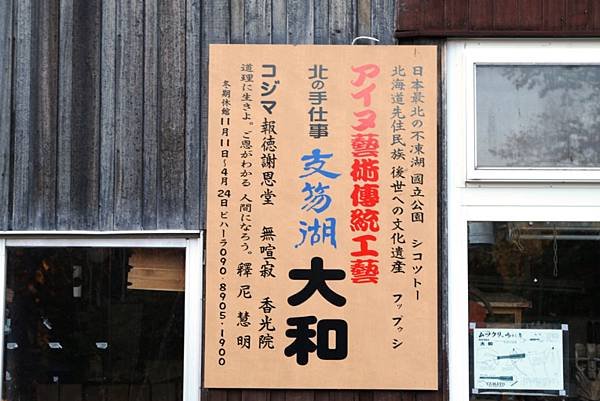 日本最北の不凍湖 国立公園 シコツトー
北海道先住民族 後世への文化遺産 フップゥシ
アイヌ藝術傳統工藝
北の手仕事 支笏湖 大和
コジマ 報徳謝恩堂 無喧寂 香光院
道理に生きよ。ご恩がわかる 人間になろう。釋尼慧明
冬期休館11月11日〜4月24日 ビハーラ090-8905-1900
大和
YAMATO